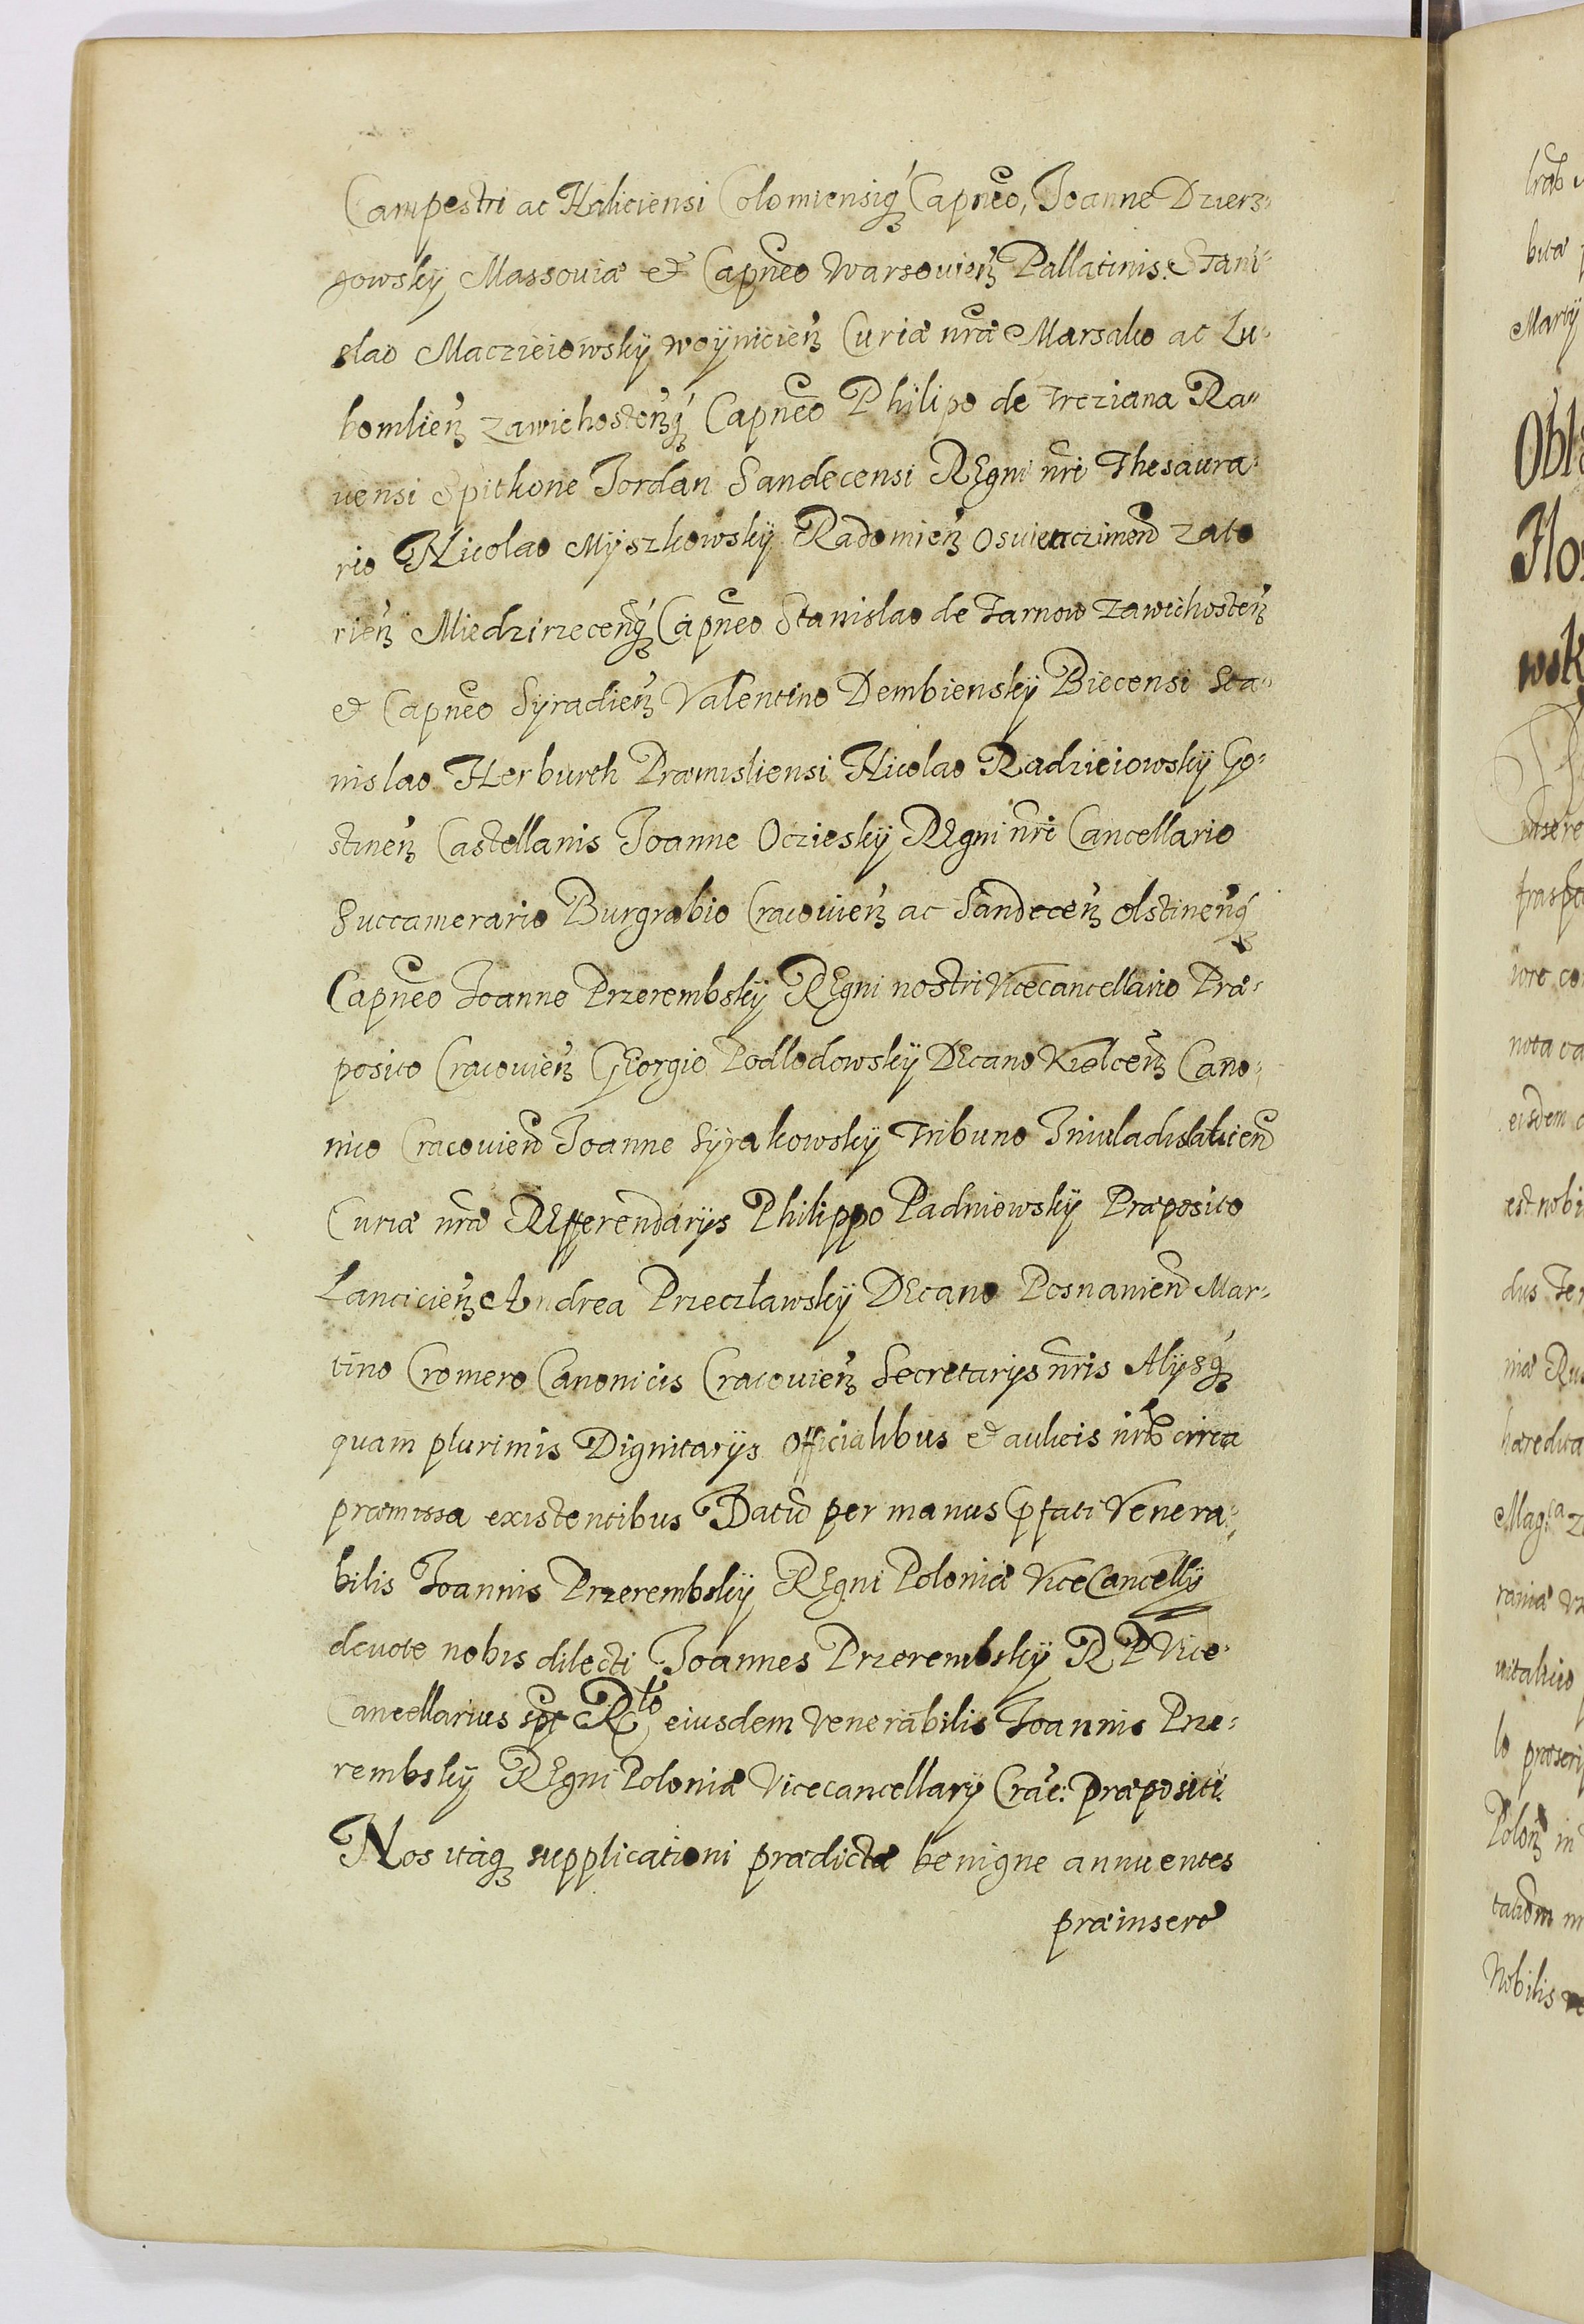 Campestri ac Haliciensi Colomiensiq́ꝫ Capneo, Joanne Dzierz-
gowskÿ Massouiæ & Capneo Warsouien̄ Pallatinis. Stani-
slao Maczieiowskÿ woÿnicien̄ Curiæ nræ Marsalco ac Lu-
bomlien̄ zawichosten̄q́ꝫ Capneo Philipo de Treziana Ra-
uensi Spitkone Jordan Sandecensi REgni nri Thesaura-
rio Nicolao Mÿszkowskÿ Radomien̄ Oswieaczimen̄ Zato
rien̄ Miedzirzecen̄q́ꝫ Capneo Stanislao de Tarnow Zawichosten̄
& Capneo Sÿradien̄ Valentino Dembienskÿ Biecensi Sta-
nislao Herburth Præmisliensi Nicolao Radzieiowskÿ Go-
stinen̄ Castellanis Joanne Oczieskÿ REgni nri Cancellario
Succamerario Burgrabio Cracouien̄ ac Sandecen̄ Olstinen̄q́ꝫ
Capneo Joanne Przerembskÿ REgni nostri Vicecancellario Præ-
posito Cracouien̄ GEorgio Podlodowskÿ DEcano Kielcen̄ Cano-
nico Cracouien̄ Joanne Sÿrakowskÿ Tribuno Iniuladislauien̄
Curiæ nræ REfferendarÿs Philippo Padniowskÿ Præposito
Lancicien̄ Andrea Przeczławskÿ DEcano Posnanien̄ Mar-
tino Cromero Canonicis Cracouien̄ Secretarÿs nris Alÿsq́ꝫ
quam plurimis Dignitarÿs officialibus & aulicis nrīs circa
præmissa existentibus Datū per manus pfati Venera-
bilis Joannis Przerembskÿ REgni Poloniæ ViceCancellÿ
deuote nobis dilecti Joannes Przerembskÿ R P Vice-
Cancellarius spt Rlō eiusdem Venerabilis Joannis Prze-
rembskÿ REgni Poloniæ Vicecancellarÿ Crac: præpositi
Nos itaqꝫ supplicationi prædictæ benigne annuentes
præinsero
lrāb
bitæ
Martÿ
Obl
Flo
wsk
insere
frasp
iore co
nota ca
eisdem
est nobi
dus Ter
niæ Rus
hæredita
Mag:ca
raniæ
uitalicio
lo præscri
Polon̄ in
Nobilis